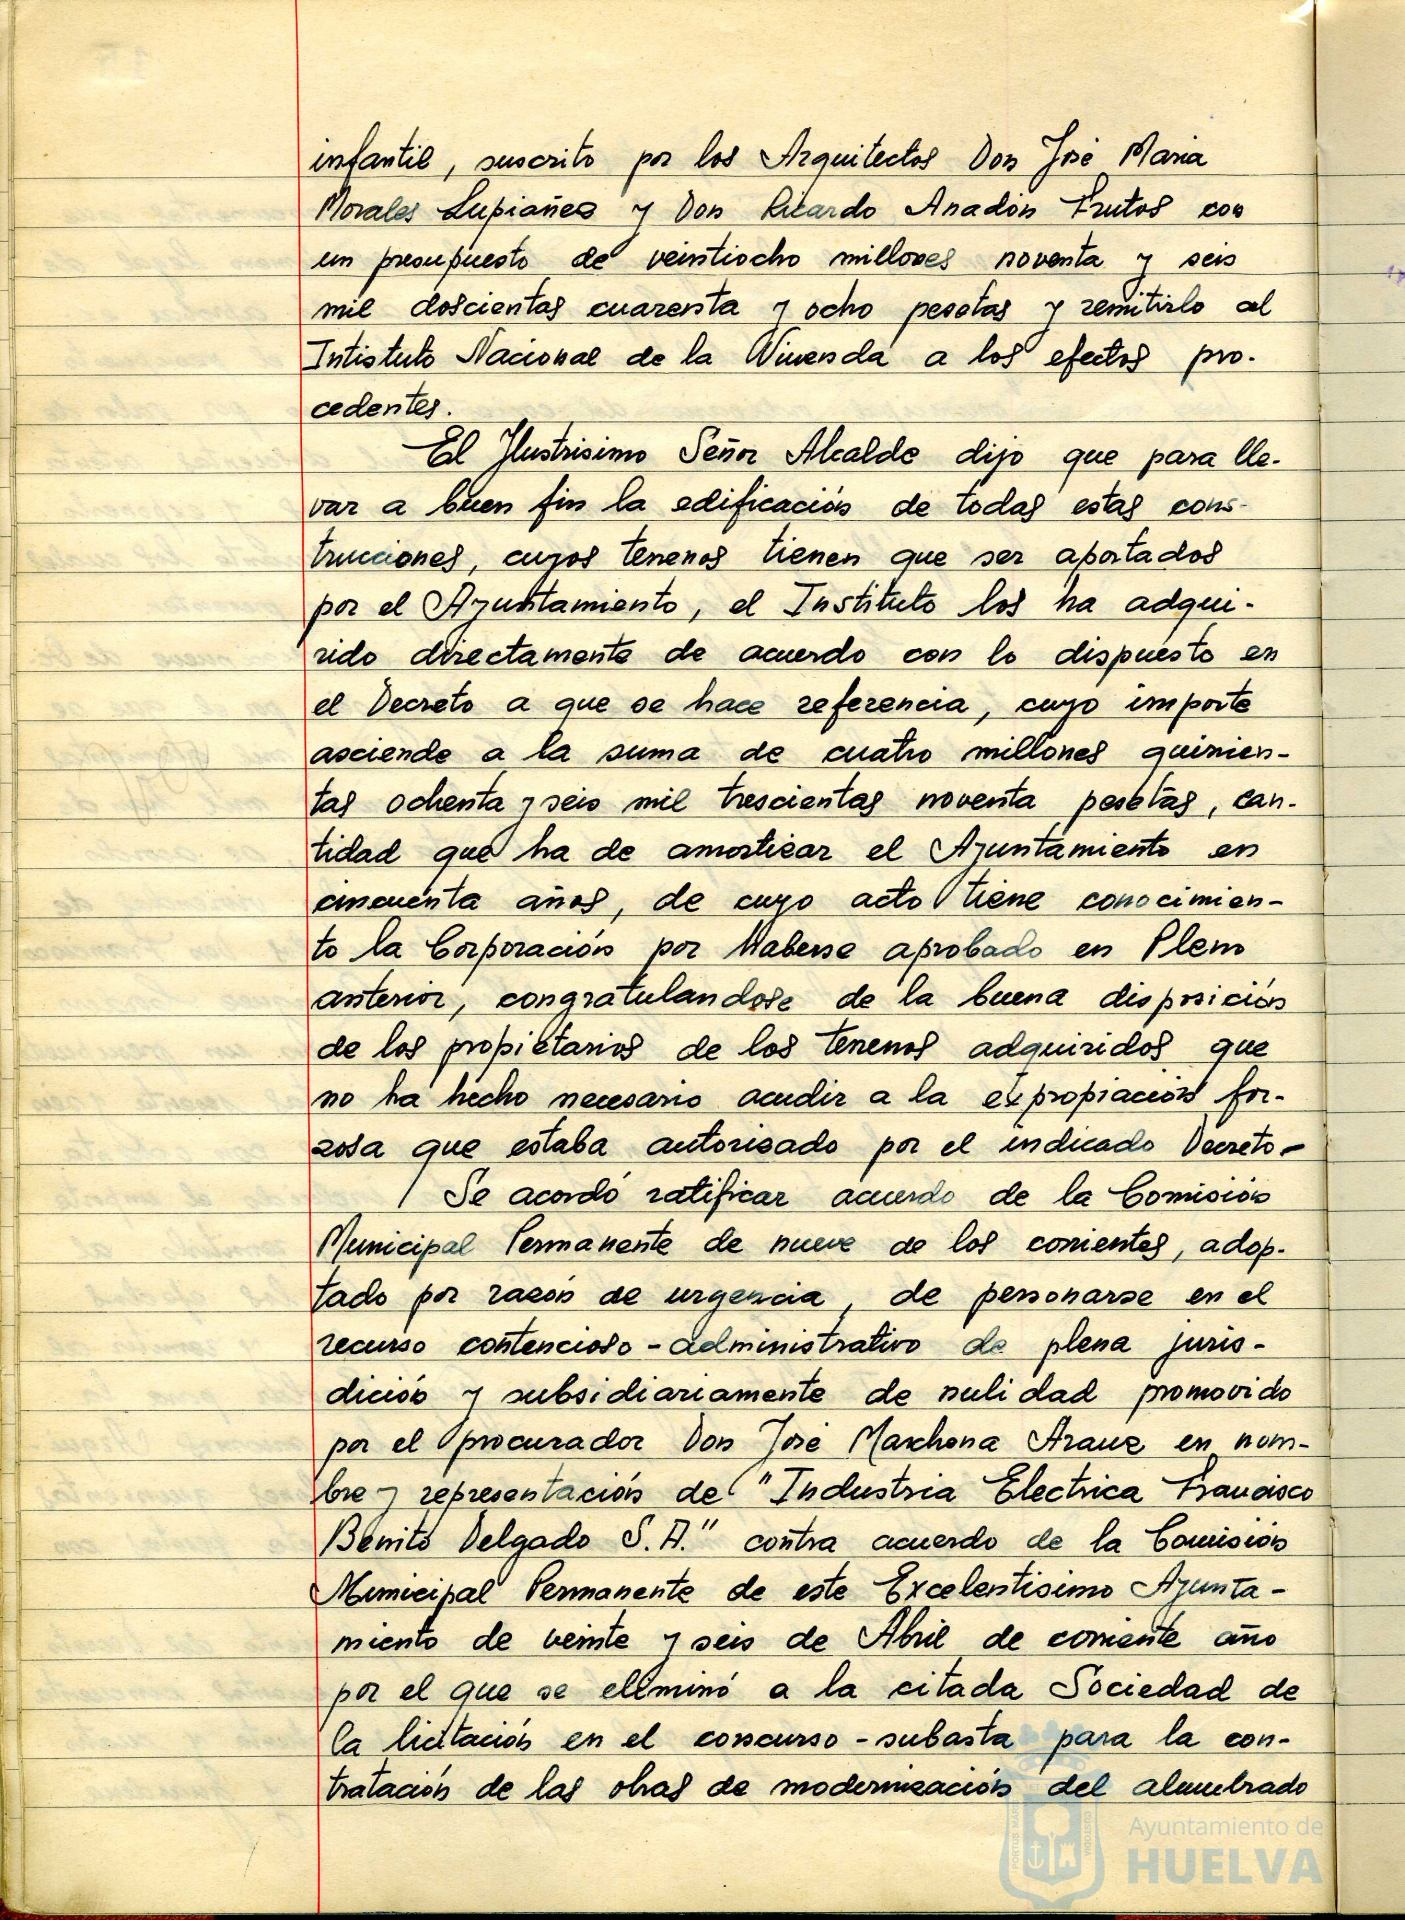 infantil, suscrito por los Arquitectos Don José Maria
Morales Lupiañez y Don Ricardo Anadón Frutos con
un presupuesto de veintiocho millones noventa y seis
mil doscientas cuarenta y ocho pesetas y remitirlo al
Intistuto Nacional de la Vivienda a los efectos pro-
cedentes.
El Ilustrisimo Señor Alcalde dijo que para lle-
var a buen fin la edificación de todas estas cons-
trucciones, cuyos terrenos tienen que ser aportados
por el Ayuntamiento, el Instituto los ha adqui-
rido directamente de acuerdo con lo dispuesto en
el Decreto a que se hace referencia, cuyo importe
asciende a la suma de cuatro millones quinien-
tas ochenta y seis mil trescientas noventa pesetas, can-
tidad que ha de amortizar el Ayuntamiento en
cincuenta años, de cuyo acto tiene conocimien-
to la Corporación por Haberse aprobado en Pleno
anterior, congratulandose de la buena disposición
de los propietarios de los terrenos adquiridos que
no ha hecho necesario acudir a la expropiación for-
zosa que estaba autorizado por el indicado Decreto.-
Se acordó ratificar acuerdo de la Comisión
Municipal Permanente de nueve de los corrientes, adop-
tado por razón de urgencia, de personarse en el
recurso contencioso-administrativo de plena juris-
dición y subsidiariamente de nulidad promovido
por el procurador Don José Marchena Arauz en nom-
bre y representación de "Industria Electrica Francisco
Benito Delgado S.A." contra acuerdo de la Comisión
Municipal Permanente de este Excelentisimo Ayunta-
miento de veinte y seis de Abril de corriente año
por el que se eliminó a la citada Sociedad de
la licitación en el concurso-subasta para la con-
tratación de las obras de modernización del alumbrado
Ayuntamiento de
HUELVA